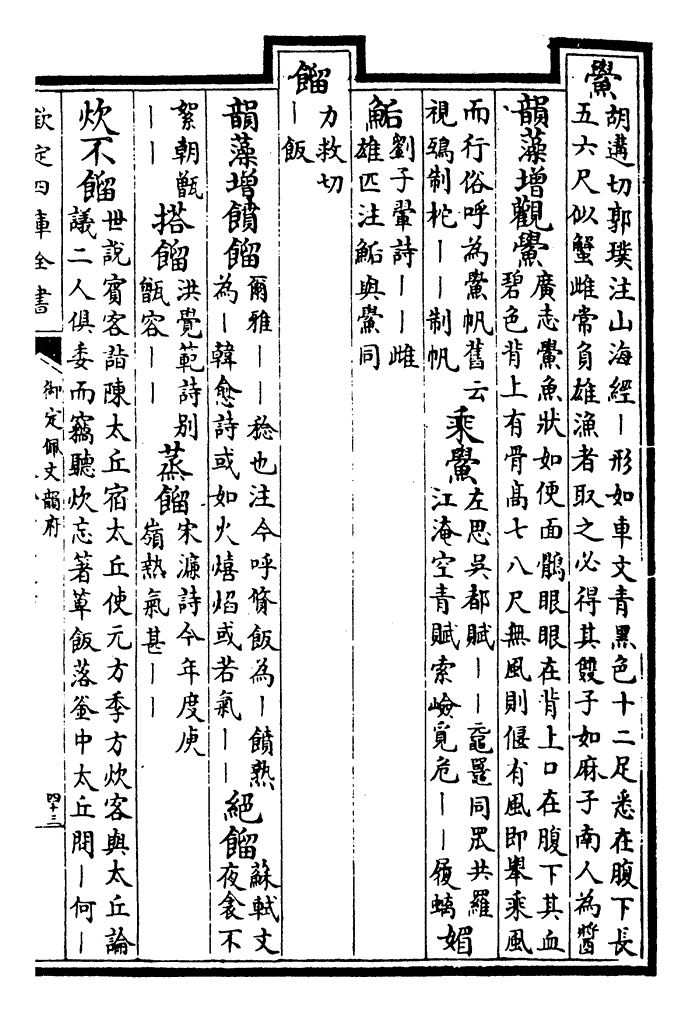 鱟
胡遘切郭璞注山海經｜形如車文青黑色十二足悉在腹下長
五六尺似蟹雌常負雄漁者取之必得其雙子如麻子南人為醬
韻藻增觀鱟
廣志鱟魚狀如便面鶻眼眼在背上口在腹下其血
碧色背上有骨高七八尺無風則偃有風即舉乘風
而行俗呼為鱟帆舊云
視鴟制柁｜｜制帆
乘鱟
左思吳都賦｜｜黿鼉同罛共羅
江淹空青賦索嶮覓危｜｜履螭
媚
鮜
劉子翬詩｜｜雌
雄匹注鮜與鱟同
餾
力救切
｜飯
韻藻增饙餾
爾雅｜｜稔也注今呼餐飯為｜饙熟
為｜韓愈詩或如火熺焰或若氣｜｜
絕餾
蘇軾文
夜衾不
絮朝甑
｜｜
搭餾
洪覺範詩別
甑容｜｜
蒸餾
宋濂詩今年度庾
嶺熱氣甚｜｜
炊不餾
世說賓客詣陳太丘宿太丘使元方季方炊客與太丘論
議二人俱委而竊聽炊忘著萆飯落釜中太丘問｜何｜
欽定四庫全書
御定佩文韻府
四十三